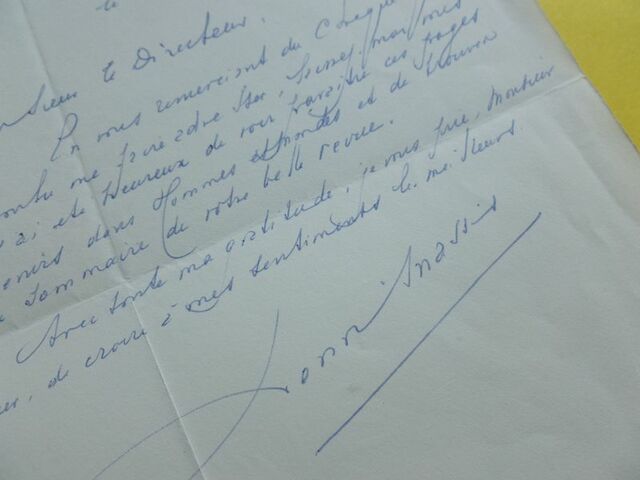 le
Monsieur le Directeur.
En vous remerciant du chèque
me faire adresser, laissez-moi vous
ai été heureux de voir paraître ces pages
dans Hommes et Mondes et de trouver
sommaire de votre belle revue.
Avec toute ma gratitude, je vous prie, Monsieur
de croire à mes sentiments les meilleurs.
Henri Massis